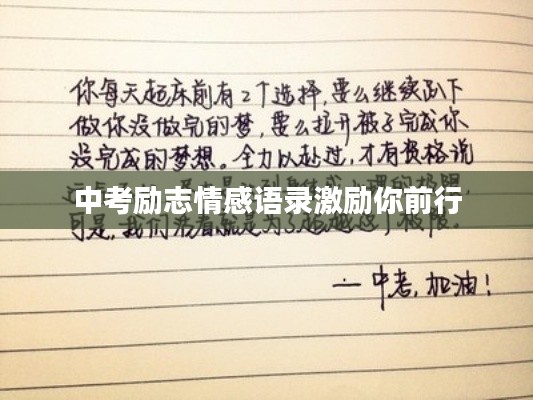 你每天起床前有2个选择,要么继续趴下
做你没做完的梦,要么拉开被子完成你
没完成的梦想。全力以赴过,才有资格说
中考励志情感语录激励你前行
可是,我们活着就是为了超越这个极限。
—中考,加油!